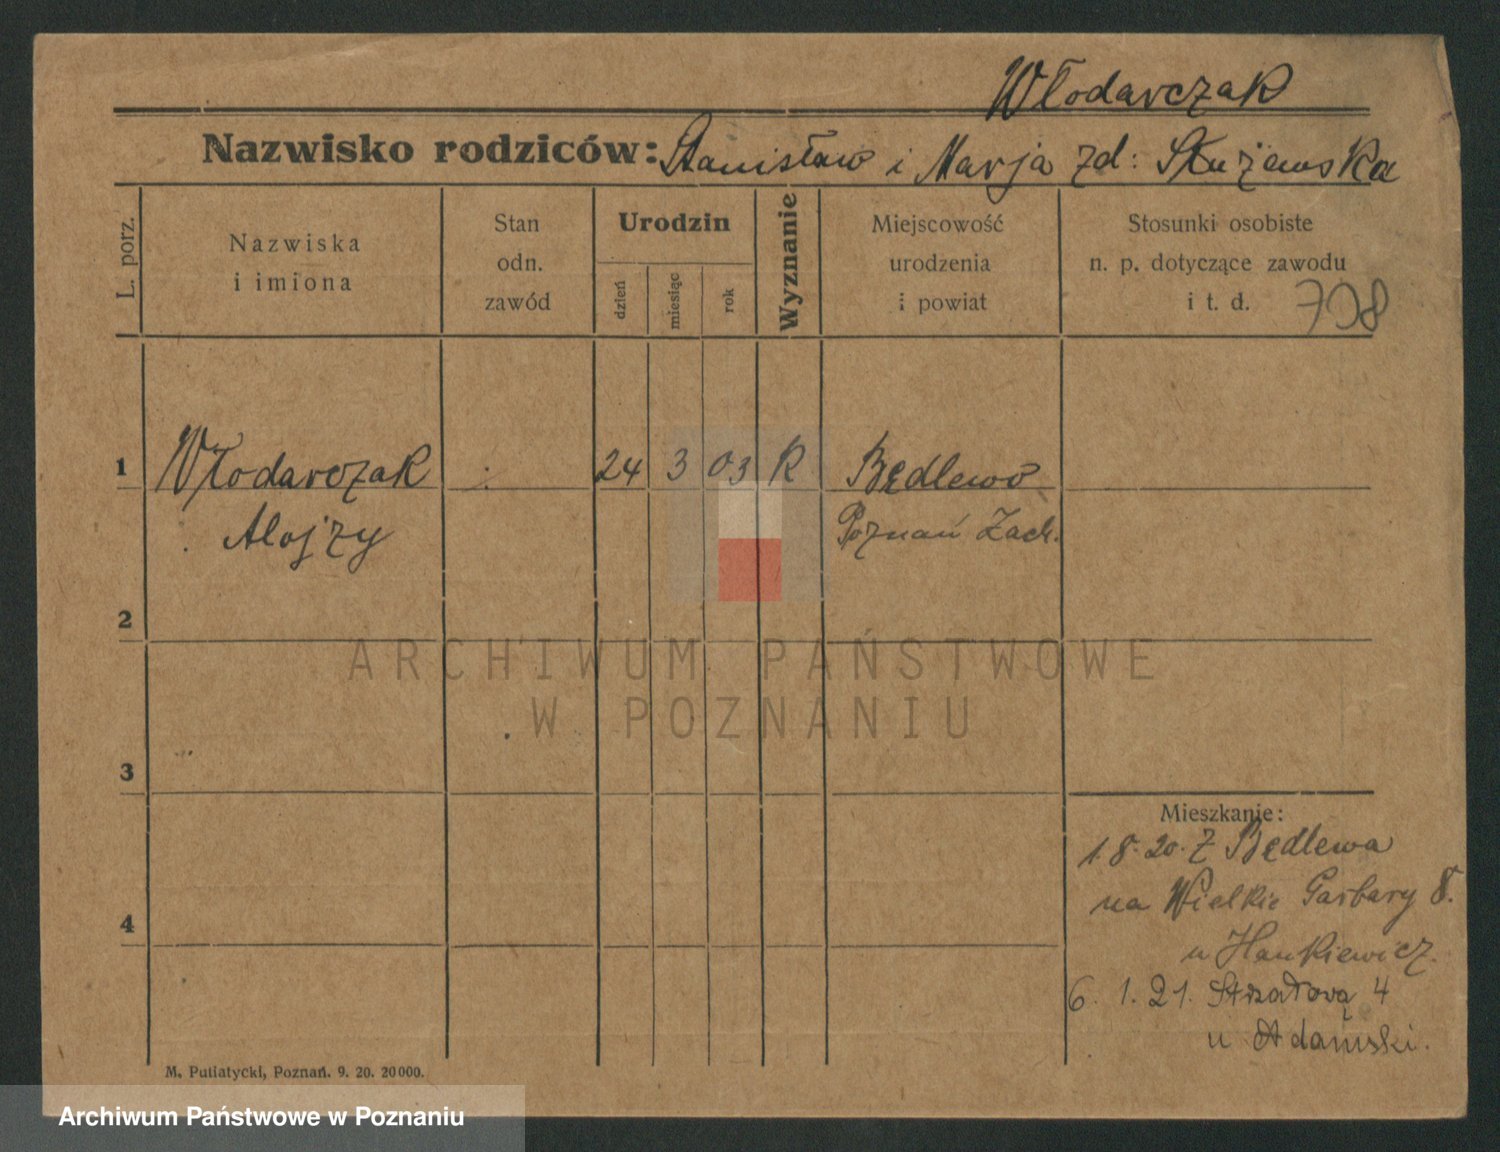 Włodarczak
Nazwisko rodziców: Stanisław i Marja zd: Służewska
L. porz.
Nazwiska
i imiona
Stan
odn.
zawód
Urodzin
dzień
miesiąc
rok
Wyznanie
Miejscowość
urodzenia
i powiat
Stosunki osobiste
n. p. dotyczące zawodu
i t. d. 708
1 Włodarczak 24 3 03 R Będlewo
Alojzy Poznań Zach.
2
3
Mieszkanie:
1.8.20. z Będlewa
na Wielkie Garbary 8.
4
u Hankiewicz.
6. 1. 21. Strzałowa 4
u Adamski.
M. Putiatycki, Poznań. 9. 20. 20000.
ARCHIWUM PAŃSTWOWE
W POZNANIU
Archiwum Państwowe w Poznaniu